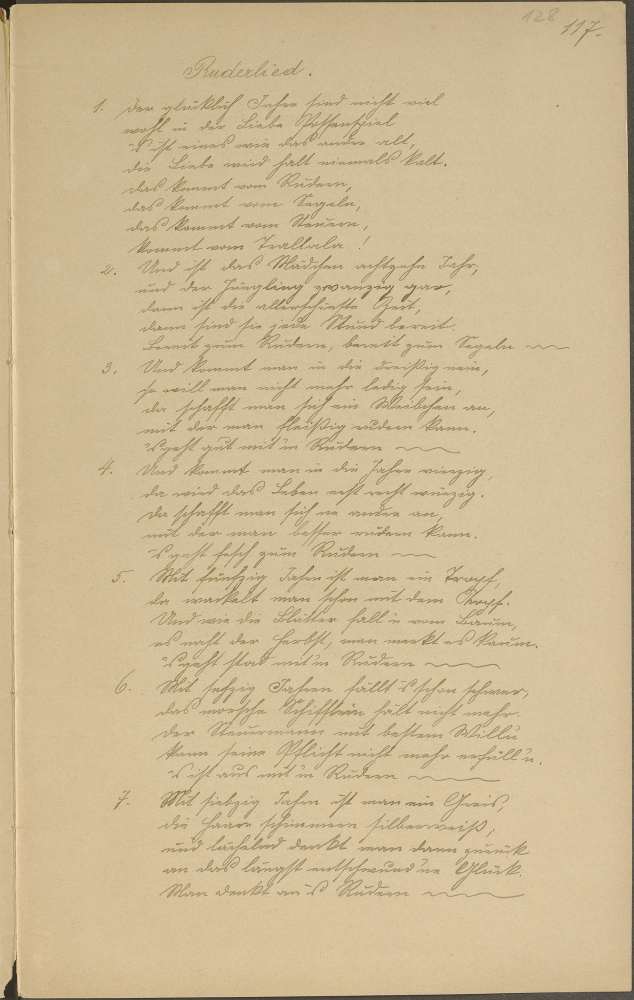 128
117.
Ruderlied.
1. Der glücklich Jahre sind nicht viel
wohl in der Liebe Possenspiel
's ist eines wie das andre alt,
die Liebe wird halt niemals kalt.
das kommt vom Rudern,
das kommt vom Segeln,
das kommt vom Steuern,
kommt vom Trallala!
2. Und ist das Mädchen achtzehn Jahr,
und der Jüngling zwanzig gar,
dann ist die allerschönste Zeit,
dann sind sie jede Stund bereit.
Bereit zum Rudern, bereit zum Segeln
3. Und kommt man in die dreißig nein,
so will man nicht mehr ledig sein,
da schafft man sich ein Weibchen an,
mit der man fleißig rudern kann.
's geht gut mit'n Rudern
4. Und kommt man in die Jahre vierzig,
da wird das Leben erst recht würzig.
da schafft man sich ne andre an,
mit der man besser rudern kann.
's geht fesch zum Rudern
5. Mit fünfzig Jahrn ist man ein Tropf,
da wackelt man schon mit dem Kopf.
Und wie die Blätter fall'n vom Baum,
es naht der Herbst, man merkt es kaum.
's geht stad mit'n Rudern
6. Mit sechzig Jahren fällt's schon schwer,
das morsche Schifflein hält nicht mehr.
der Steuermann mit bestem Will'n
kann seine Pflicht nicht mehr erfüll'n.
's ist aus mit'n Rudern
7. Mit siebzig Jahrn ist man ein Greis,
die Haare schimmern silberweiß,
und lächelnd denkt man dann zurück
an das längst entschwund'ne Glück.
Man denkt an's Rudern